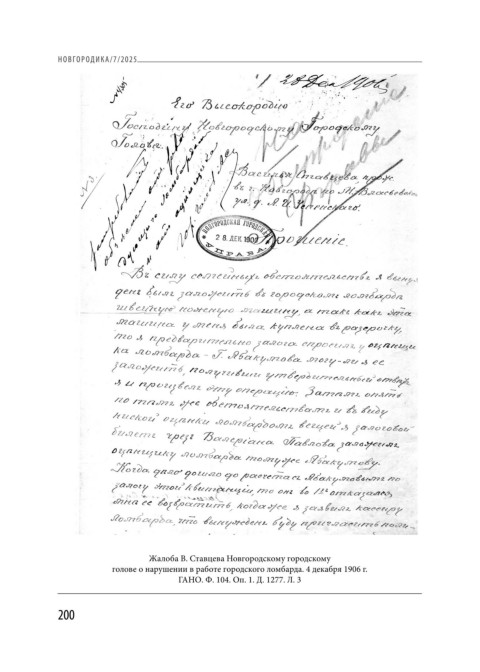 НОВГОРОДИКА/7/2025
28 Дек 1906
Его Высокородію
Господину Новгородскому Городскому
Голове.
Василія Ставцева прож.
въ г. Новгороде по М. Власьевской
ул. д. Успенскаго.
НОВГОРОДСКАЯ ГОРОДСКАЯ
28. ДЕК. 1906
УПРАВА
Прошеніе.
Въ силу семейныхъ обстоятельствъ я вынуж
денъ былъ заложить въ городскомъ ломбардѣ
швейную ножную машину, а такъ какъ эта
машина у меня была куплена въ разсрочку,
то я предварительно залога спросилъ у оцѣнщи
ка ломбарда - Г. Абакумова могу-ли я ее
заложить, получивши утвердительный отвѣтъ
я и произвелъ эту операцію. Затѣмъ опять
по темъ же обстоятельствамъ и въ виду
ниской оценки ломбардомъ вещей я залоговой
билетъ чрезъ Валеріана Павлова заложилъ
оценщику ломбарда тому же Абакумову.
Когда дело дошло до расчета съ Абакумовымъ по
залогу этой квитанціи, то онъ во 1хъ отказался
мне ее возвратить, когда же я заявилъ кассиру
ломбарда, что вынужденъ буду пригласить поли-
Жалоба В. Ставцева Новгородскому городскому
голове о нарушении в работе городского ломбарда. 4 декабря 1906 г.
ГАНО. Ф. 104. Оп. 1. Д. 1277. Л. 3
200